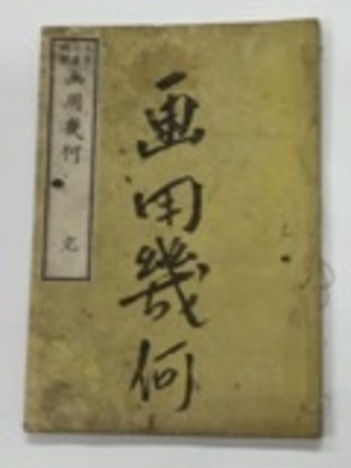 画用幾何
画用幾何 完